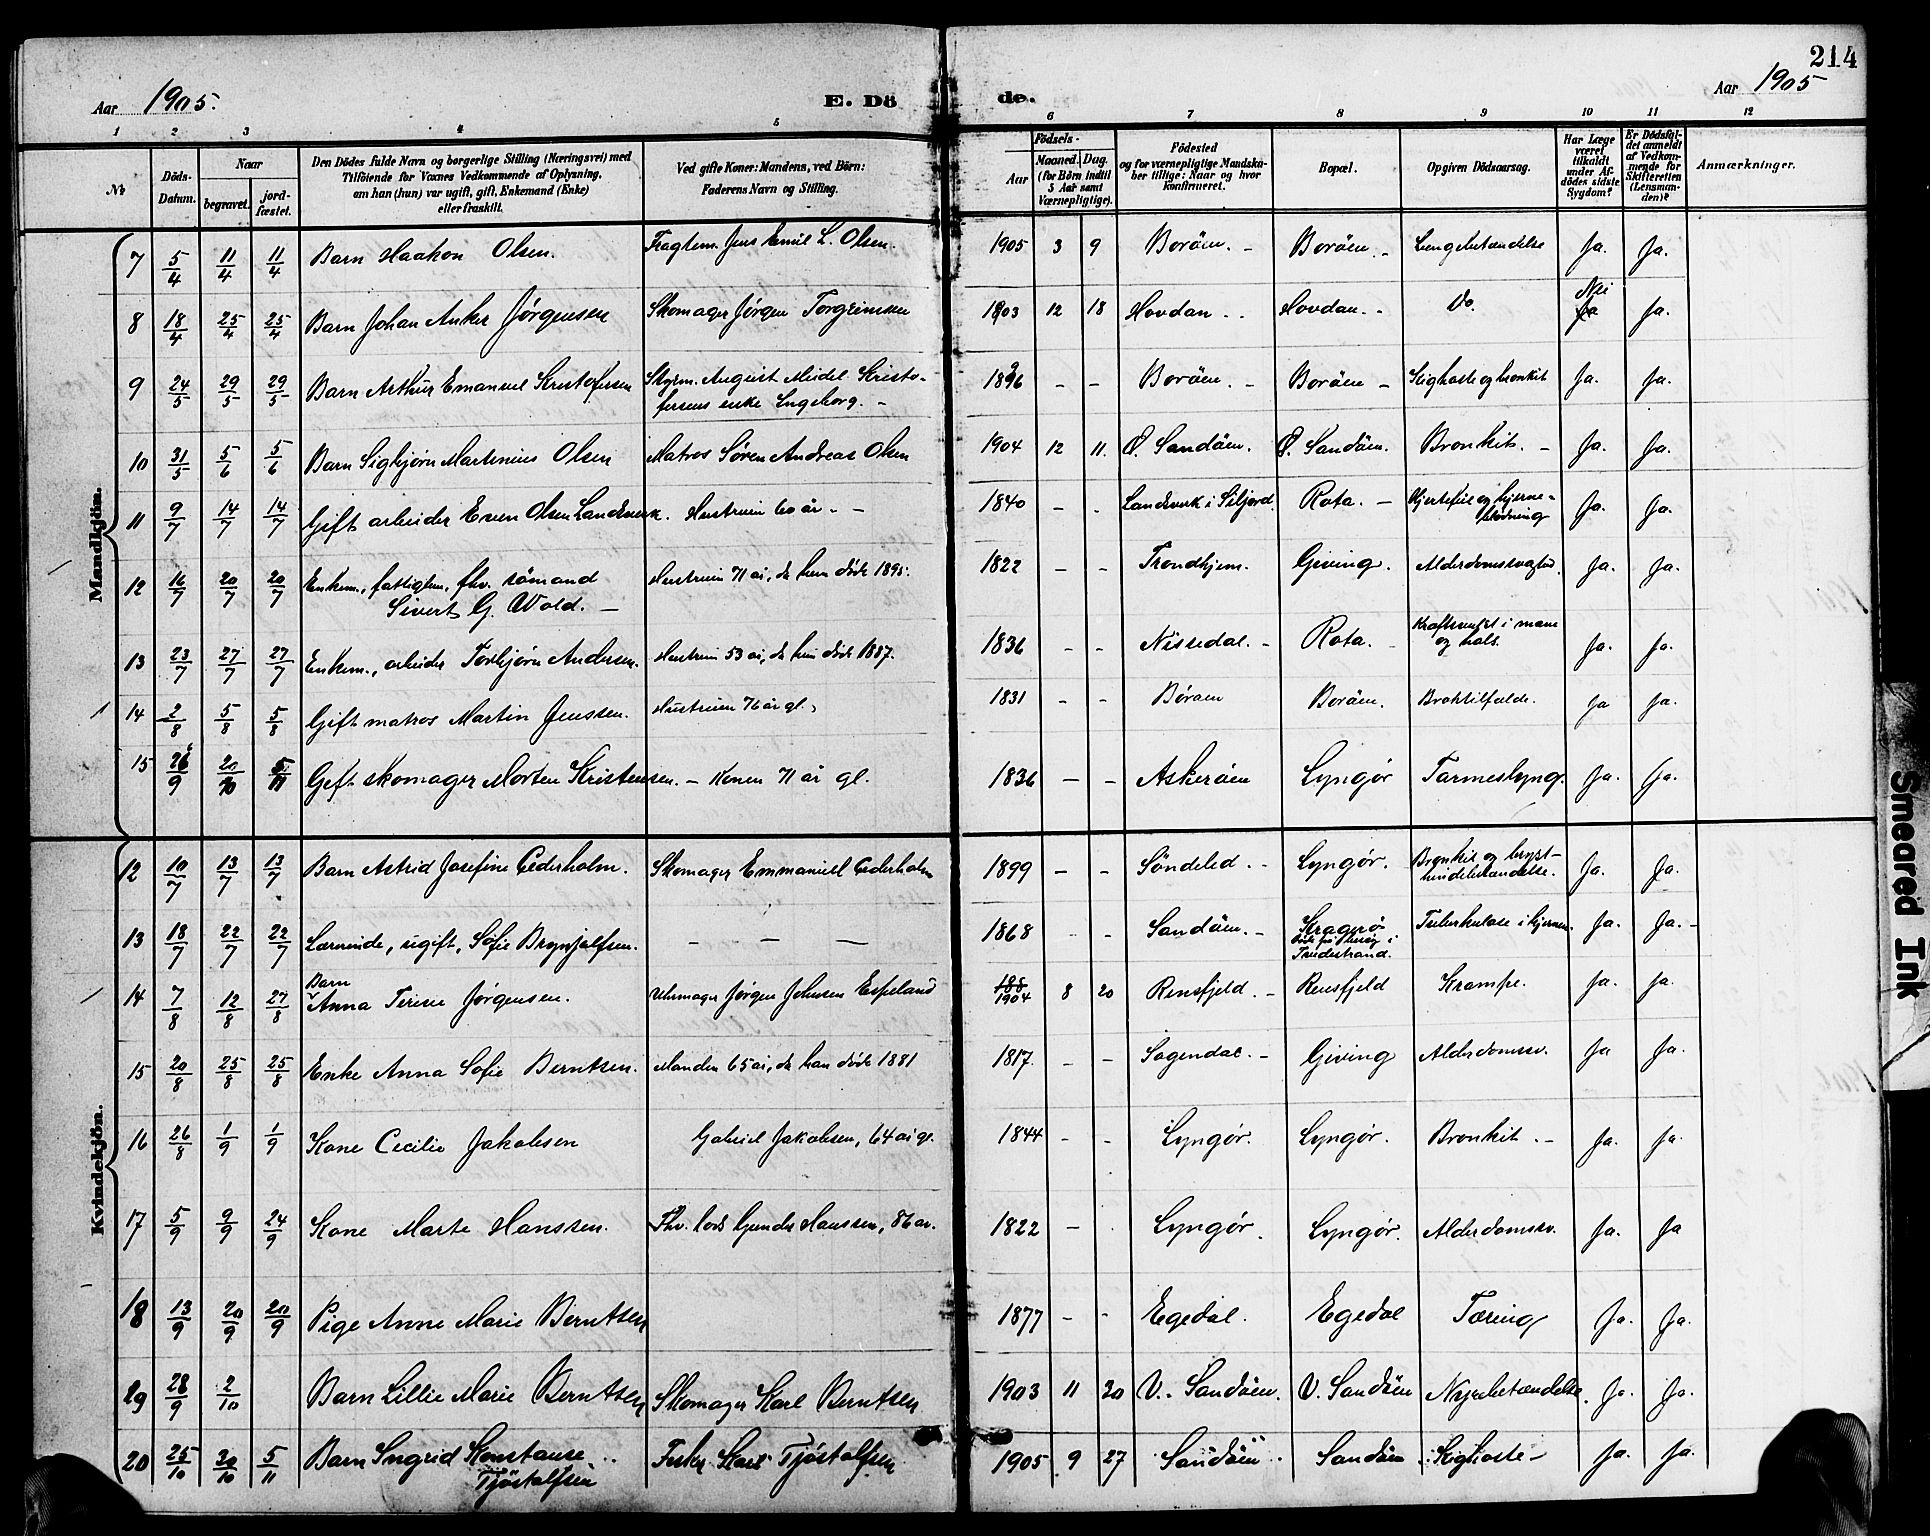 214
Aar 1905.
E. Döde.
Aar 1905
1 2 3 4 5 6 7 8 9 10 11 12
No
Döds-Datum.
Naar
begravet.
jordfæstet.
Den Dödes fulde Navn og borgerlige Stilling (Næringsvei) med
Tilföiende for Voxnes Vedkommende af Oplysning,
om han (hun) var ugift, gift, Enkemand (Enke)
eller fraskilt.
Ved gifte Koner: Mandens, ved Börn:
Faderens Navn og Stilling.
Födsels-
Aar
Maaned. Dag.
(for Börn indtil
5 Aar samt
Værnepligtige).
Födested
og for værnepligtige Mandskaber tillige: Naar og hvor
konfirmeret.
Bopæl.
Opgiven Dödsaarsag.
Har Læge
været
tilkaldt
under Afdödes sidste
Sygdom?
Er Dödsfaldet anmeldt
af Vedkommende for
Skifteretten
(Lensmanden)?
Anmærkninger.
Mandkjön.
7 5/4 11/4 11/4 Barn Haakon Olsen. Fragtem. Jens Emil L. Olsen. 1905 3 9 Boröen. - Boröen. - Lungebetændelse Ja. Ja.
8 18/4 25/4 25/4 Barn Johan Anker Jørgensen Skomager Jørgen Torgrimsen 1903 12 18 Hovdan . . Hovdan. . Do. Nei Ja Ja.
9 24/5 29/5 29/5 Barn Arthur Emanuel Kristofersen Styrm. August Meidel Kristofersens enke Ingeborg. - 1896 - - Boröen. - Boröen - Kighoste og bronkit Ja. Ja.
10 31/5 5/6 5/6 Barn Sigbjørn Martinius Olsen Matros Søren Andreas Olsen 1904 12 11. Ø. Sandöen. Ø. Sandöen. Bronkit. - Ja. Ja.
11 9/7 14/7 14/7 Gift arbeider Even Olsen Landsverk. Hustruen 60 år. - - 1840 - - Landsverk i Siljord. Rota. - Hjertefeil og hjerneblødning Ja. Ja.
12 16/7 20/7 20/7 Enkem., fattiglem, fhv. sømand
Sivert G. Wold. - Hustruen 71 år, da hun døde 1895. 1822 - - Trondhjem. Giving. Alderdomssvaghed. Ja. Ja.
13 23/7 27/7 27/7 Enkem., arbeider Torbjørn Andersen. Hustruen 53 år, da hun døde 1887. 1836 - - Nissedal. - Rota. - Kræftsvulst i mave
og hals. Ja. Ja.
14 2/8 5/8 5/8 Gift matros Martin Jenssen. Hustruen 76 år gl. 1831 - - Böröen Boröen. Broktilfælde. Ja Ja.
15 26/9 20/10 5/11 Gift skomager Morten Kristensen. - Konen 71 år gl. 1836 - - Askeröen Lyngør Tarmeslyng. Ja. Ja.
Kvindekjön.
12 10/7 13/7 13/7 Barn Astrid Josefine Cederholm. Skomager Emmanuel Cederholm 1899 - - Söndeled. - Lyngør. Bronkit og brysthindebetændelse. Ja. Ja.
13 18/7 22/7 22/7 Lærerinde, ugift, Sofie Brynjulfsen. - - - 1868 - - Sandöen. - Kragerö
Tvedestrand. Tuberkulose i hjernen. Ja. Ja. -
14 7/8 12/8 27/8 Barn
Anna Terese Jørgensen. Uhrmager Jørgen Johnsen Espeland 188
1904 8 20 Rensfjeld. - Rensfjeld Krampe. Ja. Ja.
15 20/8 25/8 25/8 Enke Anna Sofie Berntsen. Manden 65 år, da han døde 1881 1817. - - Sogendal. - Giving Alderdomssv. Ja Ja.
16 26/8 1/9 1/9 Kone Cecilie Jakobsen Gabriel Jakobsen, 64 år gl. 1844 - - Lyngør. Lyngør. Bronkit. - Ja. Ja.
17 5/9 9/9 24/9 Kone Marte Hanssen. Fhv. lods Gunder Hanssen, 86 år. 1822 - - Lyngør. Lyngør. Alderdomssv. Ja. Ja
18 13/9 20/9 20/9 Pige Anne Marie Berntsen 1877 - - Egedal. Egedal Tæring Ja. Ja.
29 28/9 2/10 Barn Lillie Marie Berntsen Skomager Karl Berntsen 1903 11 20 V. Sandöen. V. Sandöen Nyrebetændelse. Ja. Ja.
20 25/10 30/10 5/11 Barn Ingrid Konstanse
Tjöstolfsen Fisker Karl Tjöstolfsen 1905 9 27 Sandöen . . Sandöen Kighoste - Ja. Ja.
Smeared Ink